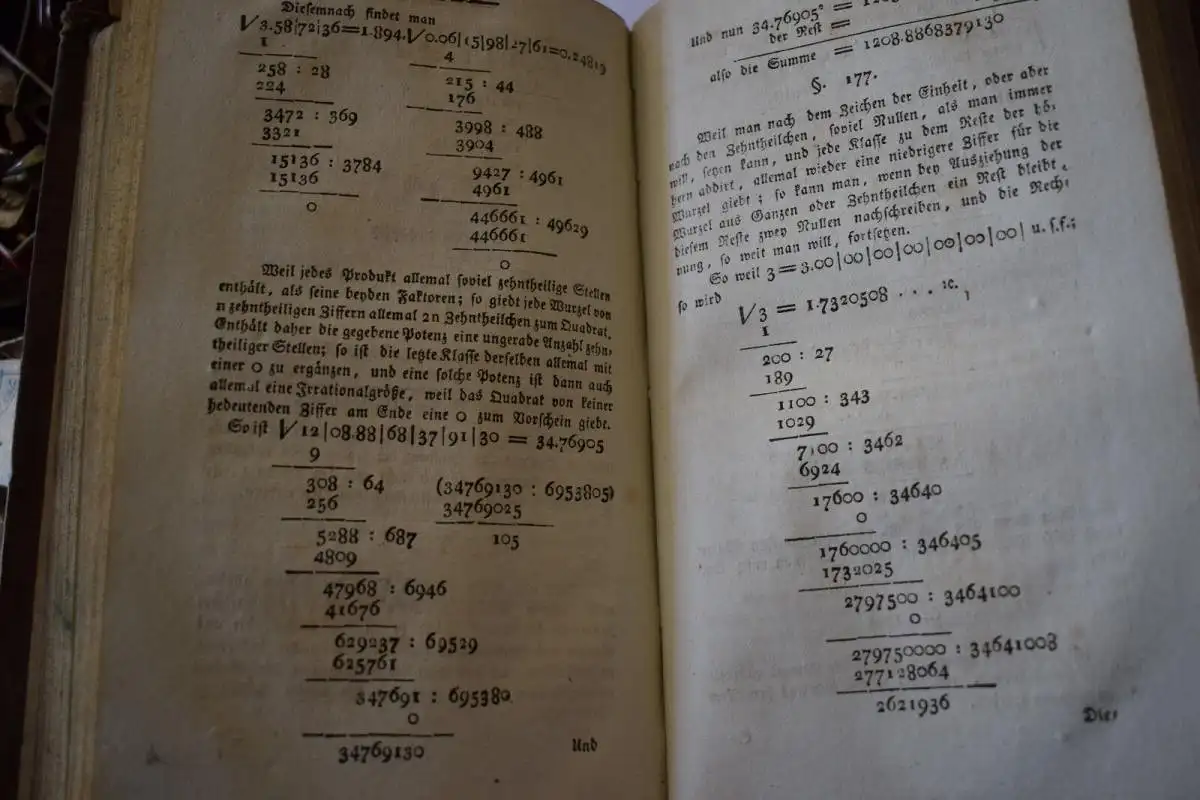 Diesemnach findet man
√3.58|72|36=1.894. √0.06|15|98|27|61=0.24819
1
258 : 28
224
3472 : 369
3321
15136 : 3784
15136
0
4
215 : 44
176
3998 : 488
3904
9427 : 4961
4961
446661 : 49629
446661
0
Weil jedes Produkt allemal soviel zehntheilige Stellen
enthält, als seine beyden Faktoren; so giebt jede Wurzel von
n zehntheiligen Ziffern allemal 2n Zehntheilchen zum Quadrat.
Enthält daher die gegebene Potenz eine ungerade Anzahl zehn-
theiliger Stellen; so ist die letzte Klasse derselben allemal mit
einer 0 zu ergänzen, und eine solche Potenz ist dann auch
allemal eine Irrationalgröße, weil das Quadrat von keiner
bedeutenden Ziffer am Ende eine 0 zum Vorschein giebt.
So ist √12|08.88|68|37|91|30 = 34.76905
9
308 : 64
256
5288 : 687
4809
47968 : 6946
41676
629237 : 69529
625761
347691 : 695380
0
34769130
(34769130 : 6953805)
34769025
105
Und
Und nun 34.76905² =
der Rest =
also die Summe = 1208.8868379130
§. 177.
Weil man nach dem Zeichen der Einheit, oder aber
nach den Zehntheilchen, soviel Nullen, als man immer
will, setzen kann, und jede Klasse zu dem Reste der hö-
hern addirt, allemal wieder eine niedrigere Ziffer für die
Wurzel giebt; so kann man, wenn bey Ausziehung der
Wurzel aus Ganzen oder Zehntheilchen ein Rest bleibt,
diesem Reste zwey Nullen nachschreiben, und die Rech-
nung, so weit man will, fortsetzen.
So weil 3=3.00|00|00|00|00|00|00| u. s. f.;
so wird
√3 = 1.7320508 . . . ꝛc.
1
200 : 27
189
1100 : 343
1029
7100 : 3462
6924
17600 : 34640
0
1760000 : 346405
1732025
2797500 : 3464100
0
279750000 : 34641008
277128064
2621936
Die-